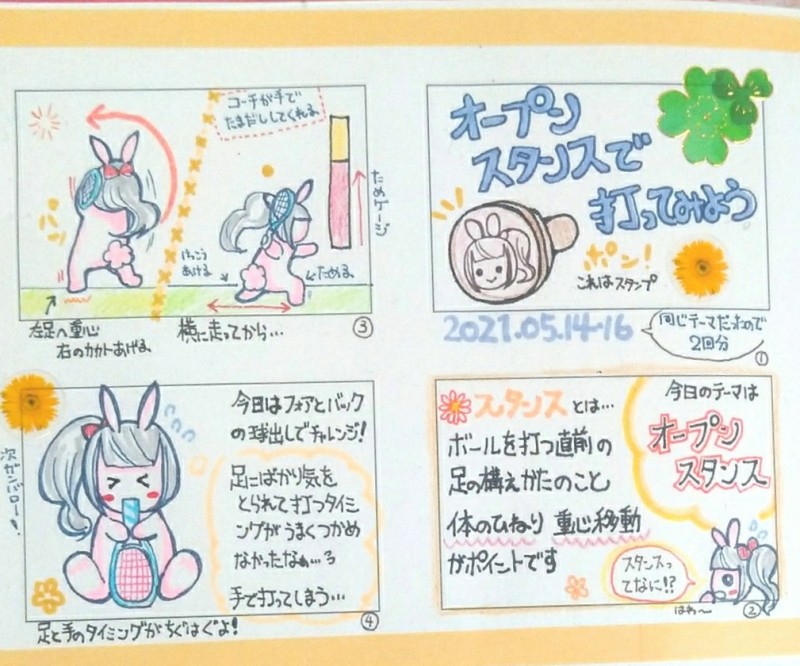 オープン
スタンスで
打ってみよう
ポン!
これはスタンプ
2021.05.14-16
同じテーマだったので
2回分
①
今日のテーマは
オープン
スタンス
スタンスとは…
ボールを打つ直前の
足の構えがたのこと
体のひねり 重心移動
がポイントです
スタンスっ
てなに!?
はわ〜
②
コーチが手で
たまだししてくれる
ためゲージ
けっこう
あげる
ためる
左足へ重心
右のカカトあげる
横に走ってから…
③
今日はフォアとバック
の球出しでチャレンジ!
足にばかり気を
とられて打つタイミ
ングがうまくつかめ
なかったなぁ…
手で打ってしまう…
次ガンバロー!
足と手のタイミングがちぐはぐよ!
④